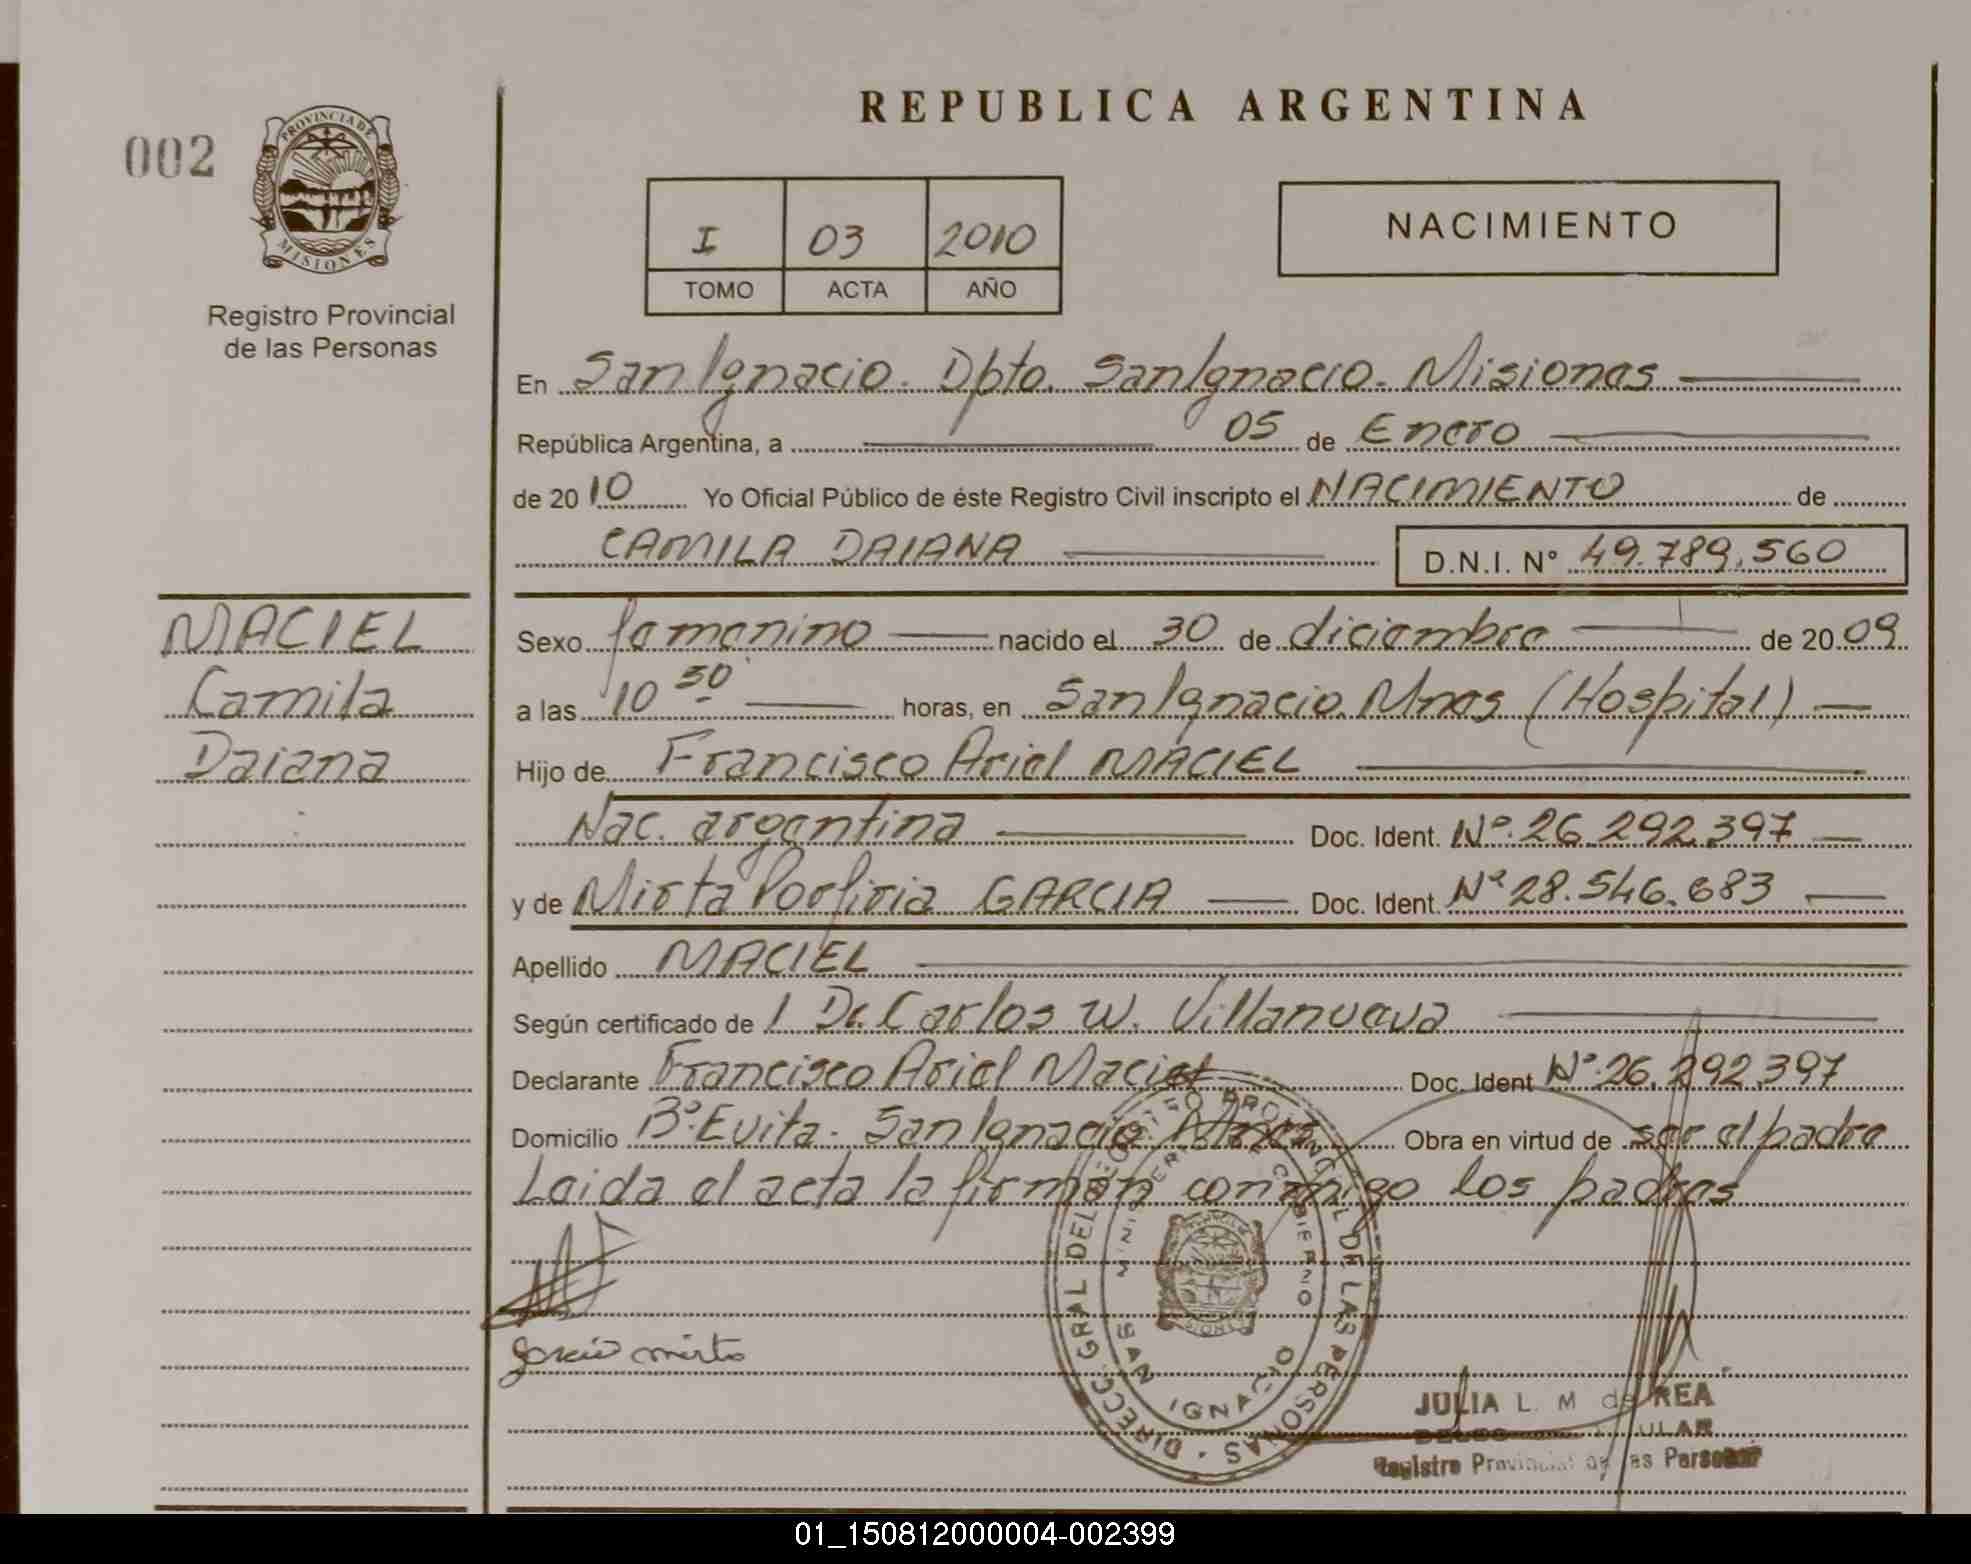 002
PROVINCIA DE
MISIONES
Registro Provincial
de las Personas
REPUBLICA ARGENTINA
I 03 2010
TOMO ACTA AÑO
NACIMIENTO
En San Ignacio. Dpto. San Ignacio. Misiones
República Argentina, a 05 de Enero
de 20 10 Yo Oficial Público de éste Registro Civil inscripto el NACIMIENTO de
CAMILA DAIANA D.N.I. N° 49.789.560
MACIEL
Camila
Daiana
Sexo femenino nacido el 30 de diciembre de 20 09
a las 10 50 horas, en San Ignacio Mnes (Hospital)
Hijo de Francisco Ariel MACIEL
Nac. argentina Doc. Ident. N°. 26.292.397
y de Mirta Porfiria GARCIA Doc. Ident. N° 28.546.683
Apellido MACIEL
Según certificado de 1 Dr. Carlos W. Villanueva
Declarante Francisco Ariel Maciel Doc. Ident N°. 26.292.397
Domicilio B°. Evita. San Ignacio Mnes Obra en virtud de ser el padre
Leida el acta la firman conmigo los padres
garcia mirta
DIRECC. GRAL DEL REGISTRO PROVINCIAL DE LAS PERSONAS
MINISTERIO DE GOBIERNO
SAN IGNACIO
JULIA L. M de REA
Registro Provincial de las Personas
01_150812000004-002399